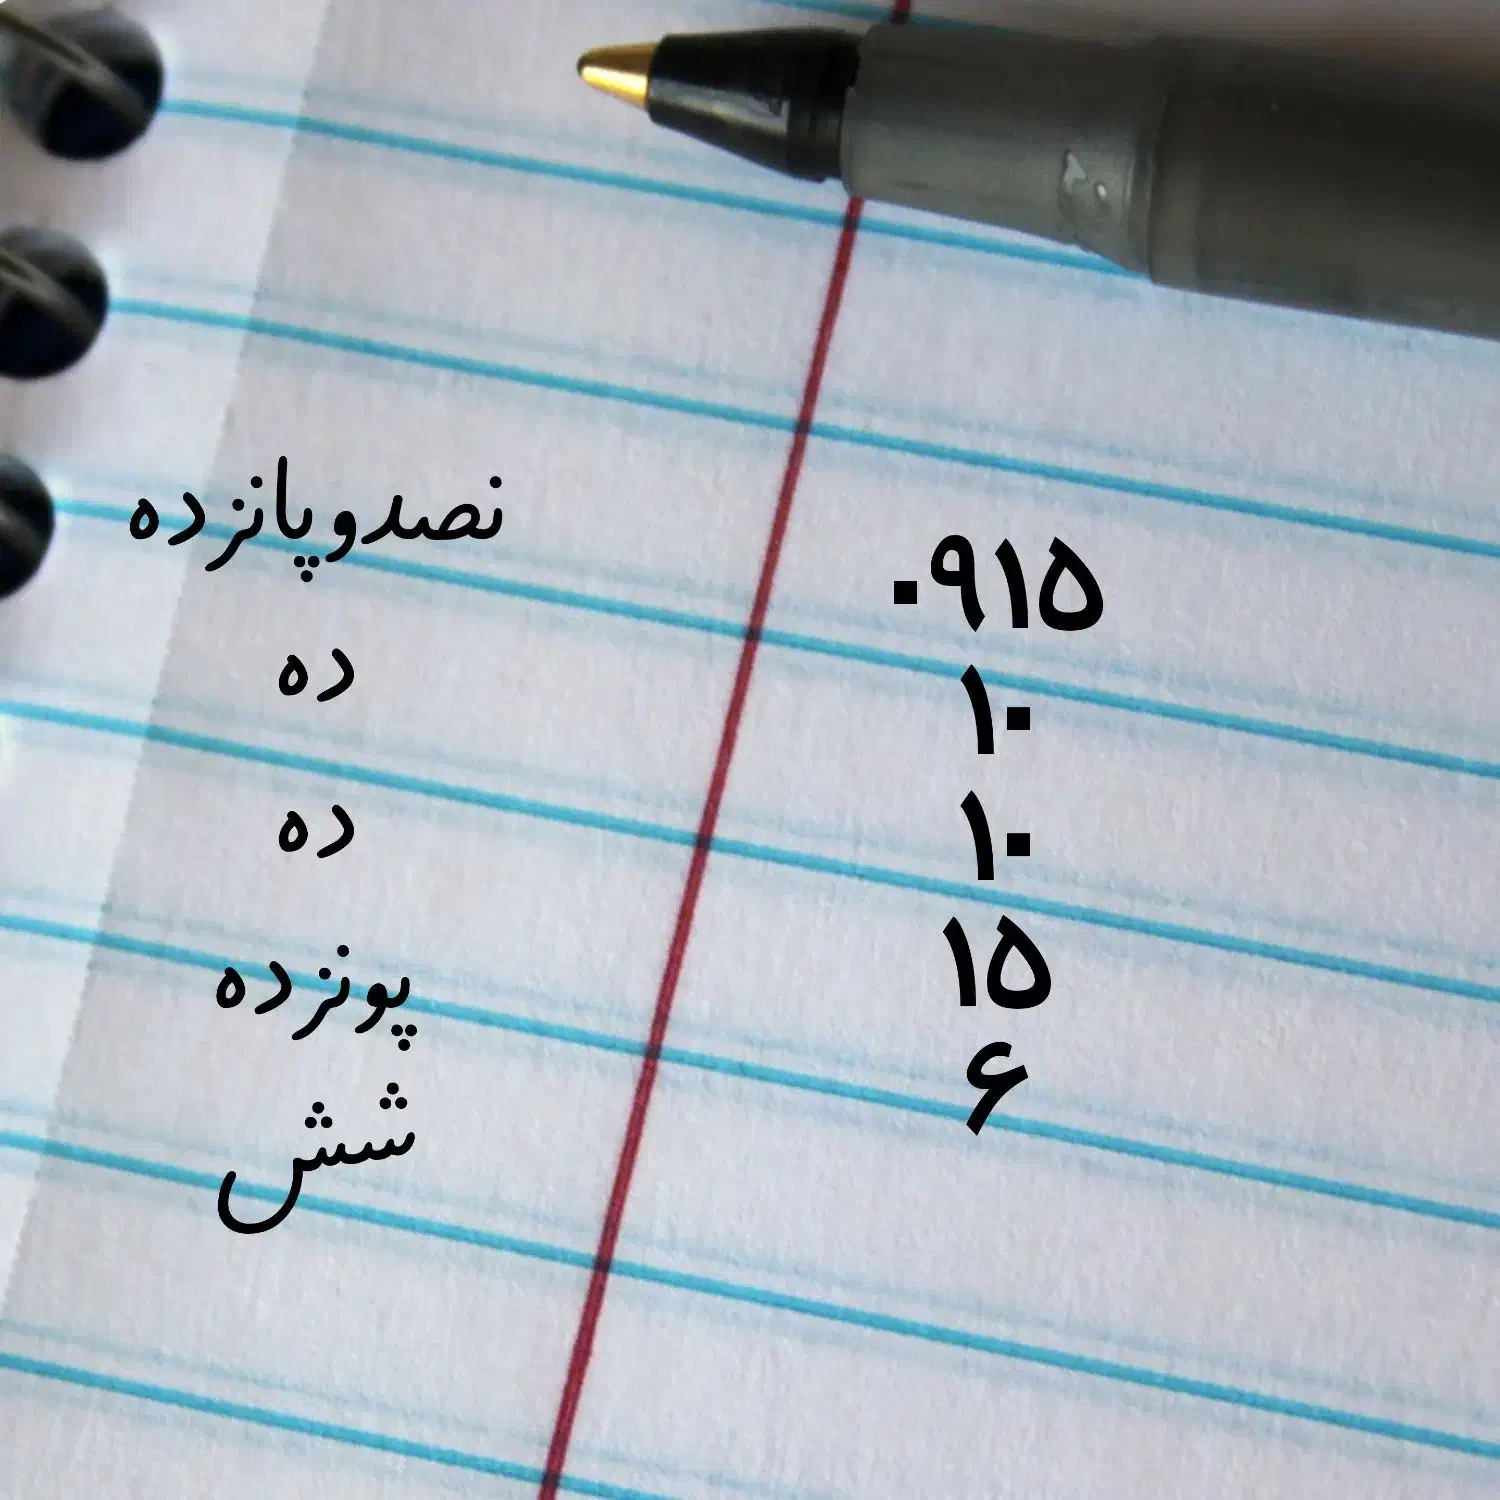 ۰۹۱۵
۱۰
۱۰
۱۵
۶
نصدوپانزده
ده
ده
پونزده
شش